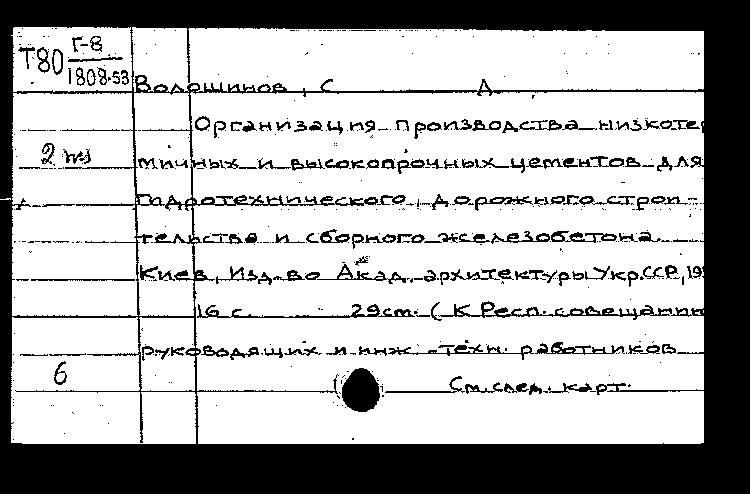 Т80 Г-8
1808-53
Волошинов, С. Д.
Организация производства низкотер
2
мичных и высокопрочных цементов для
гидротехнического, дорожного строи-
тельства и сборного железобетона.
Киев, Изд-во Акад. архитектуры Укр.ССР, 19
16 с. 29см. (К Респ. совещанию
руководящих и инж.-техн. работников
6
См. след. карт.